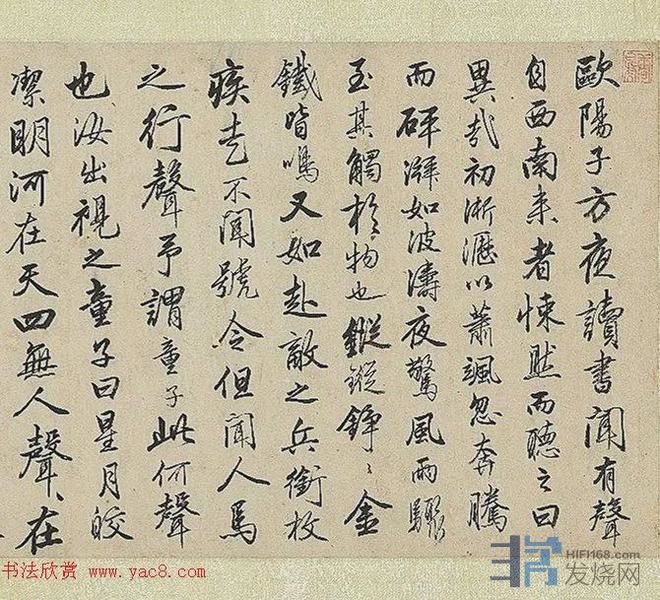 歐陽子方夜讀書聞有聲
自西南来者悚然而聽之曰
異哉初淅瀝以蕭颯忽奔騰
而砰湃如波濤夜驚風雨驟
至其觸於物也鏦鏦錚〻金
鐵皆鳴又如赴敵之兵銜枚
疾走不聞號令但聞人馬
之行聲予謂童子此何聲
也汝出視之童子曰星月皎
潔明河在天四無人聲〻在
书法欣赏 www.yac8.com
HIFI168.com
发烧网